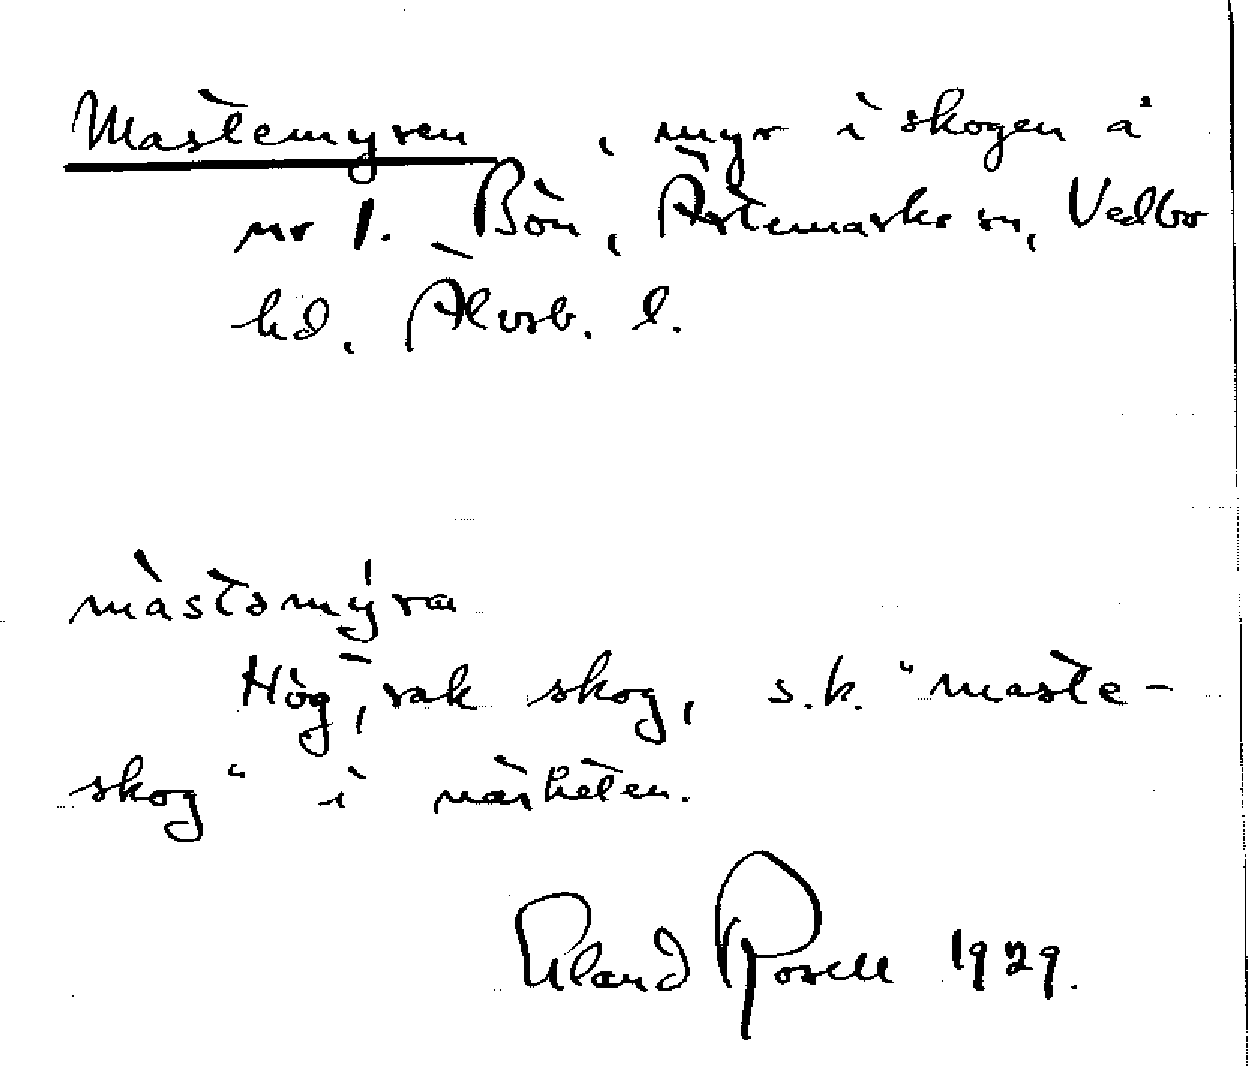 Mastemyren, myr i skogen å
nr 1. Bön, Ärtemarks sn, Vedbo
hd. Älvsb. l.
màstəmy̍ra
Hög, rak skog, s.k. "maste-
skog" i närheten.
Erland Rosell 1929.